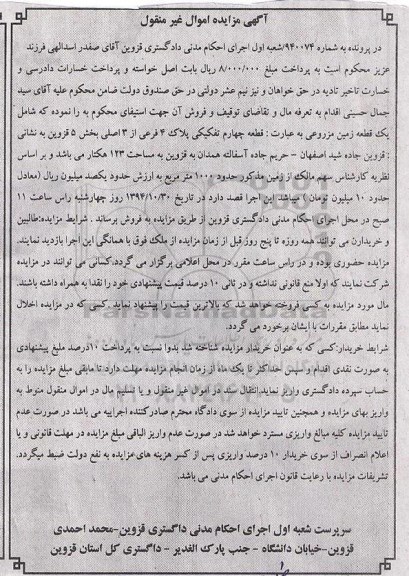 آگهی مزایده اموال غیر منقول
در پرونده به شماره ۹۴۰۰۷۴/شعبه اول اجرای احکام مدنی دادگستری قزوین آقای صفدر اسدالهی فرزند
عزیز محکوم است به پرداخت مبلغ ۸/۰۰۰/۰۰۰ ریال بابت اصل خواسته و پرداخت خسارات دادرسی و
خسارت تاخیر تادیه در حق خواهان و نیز نیم عشر دولتی در حق صندوق دولت ضامن محکوم علیه آقای سید
جمال حسینی اقدام به تعرفه مال و تقاضای توقیف و فروش آن جهت استیفای محکوم به را نموده که شامل
یک قطعه زمین مزروعی به عبارت : قطعه چهارم تفکیکی پلاک ۴ فرعی از ۳ اصلی بخش ۵ قزوین به نشانی
: قزوین جاده شید اصفهان – حریم جاده آسفالته همدان به قزوین به مساحت ۱۲۳ هکتار می باشد و بر اساس
نظریه کارشناس سهم مالک از زمین مذکور حدود ۱۰۰۰ متر مربع به ارزش حدود یکصد میلیون ریال (معادل
حدود ۱۰ میلیون تومان ) میباشد این اجرا قصد دارد در تاریخ ۱۳۹۴/۱۰/۳۰ روز چهارشنبه راس ساعت ۱۱
صبح در محل اجرای احکام مدنی دادگستری قزوین از طریق مزایده به فروش برساند . شرایط مزایده:طالبین
و خریداران می توانند همه روزه تا پنج روز قبل از زمان مزایده از ملک فوق با هماهنگی این اجرا بازدید نمایند.
مزایده حضوری بوده و در راس ساعت مقرر در محل اعلامی برگزار می گردد.کسانی می توانند در مزایده
شرکت نمایند که اولا منع قانونی نداشته و در ثانی ۱۰ درصد قیمت پیشنهادی خود را نقدا به همراه داشته باشند.
مال مورد مزایده به کسی فروخته خواهد شد که بالاترین قیمت را پیشنهاد نماید .کسی که در مزایده اخلال
نماید مطابق مقررات با ایشان برخورد می گردد.
شرایط خریدار:کسی که به عنوان خریدار مزایده شناخته شد بدوا نسبت به پرداخت ۱۰درصد مبلغ پیشنهادی
به صورت نقدی اقدام و سپس حداکثر تا یک ماه از زمان انجام مزایده مهلت دارد تا مابقی مبلغ مزایده را به
حساب سپرده دادگستری واریز نماید.انتقال سند در اموال غیر منقول و یا تسلیم مال در اموال منقول منوط به
واریز بهای مزایده و همچنین تایید مزایده از سوی دادگاه محترم صادرکننده اجراییه می باشد در صورت عدم
تایید مزایده کلیه مبالغ واریزی مسترد خواهد شد در صورت عدم واریز الباقی مبلغ مزایده در مهلت قانونی و یا
اعلام انصراف از سوی خریدار ۱۰ درصد واریزی پس از کسر هزینه های مزایده به نفع دولت ضبط میگردد.
تشریفات مزایده با رعایت قانون اجرای احکام مدنی می باشد.
سرپرست شعبه اول اجرای احکام مدنی دادگستری قزوین-محمد احمدی
قزوین-خیابان دانشگاه – جنب پارک الغدیر – دادگستری کل استان قزوین